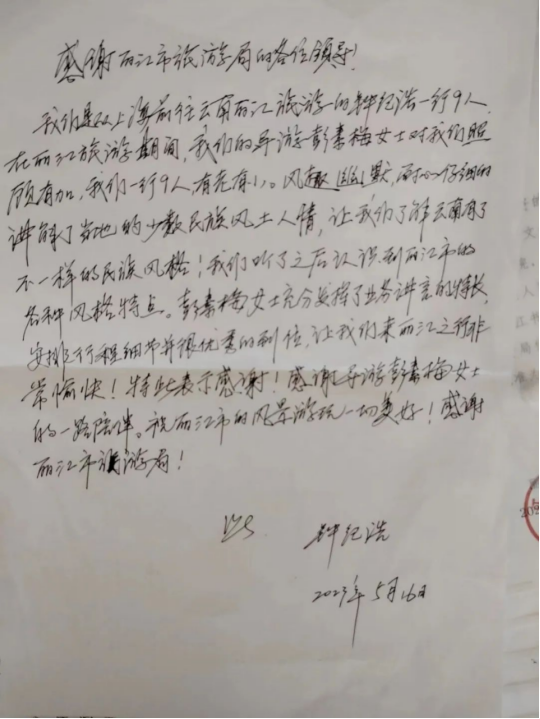 感谢丽江市旅游局的各位领导!
我们是从上海前往云南丽江旅游的钟纪浩一行9人,
在丽江旅游期间,我们的导游彭素梅女士对我们照
顾有加,我们一行9人,有老有小。风趣幽默,耐心仔细的
讲解了当地的少数民族风土人情,让我们了解云南有了
不一样的民族风格!我们听了之后认识到丽江市的
各种风格特点。彭素梅女士充分发挥了业务讲言的特长,
安排了行程细节并很优秀的到位,让我们来丽江之行非
常愉快!特此表示感谢!感谢导游彭素梅女士
的一路陪伴。祝丽江市的风景游玩一切美好!感谢
丽江市旅游局!
钟纪浩
2023年5月16日